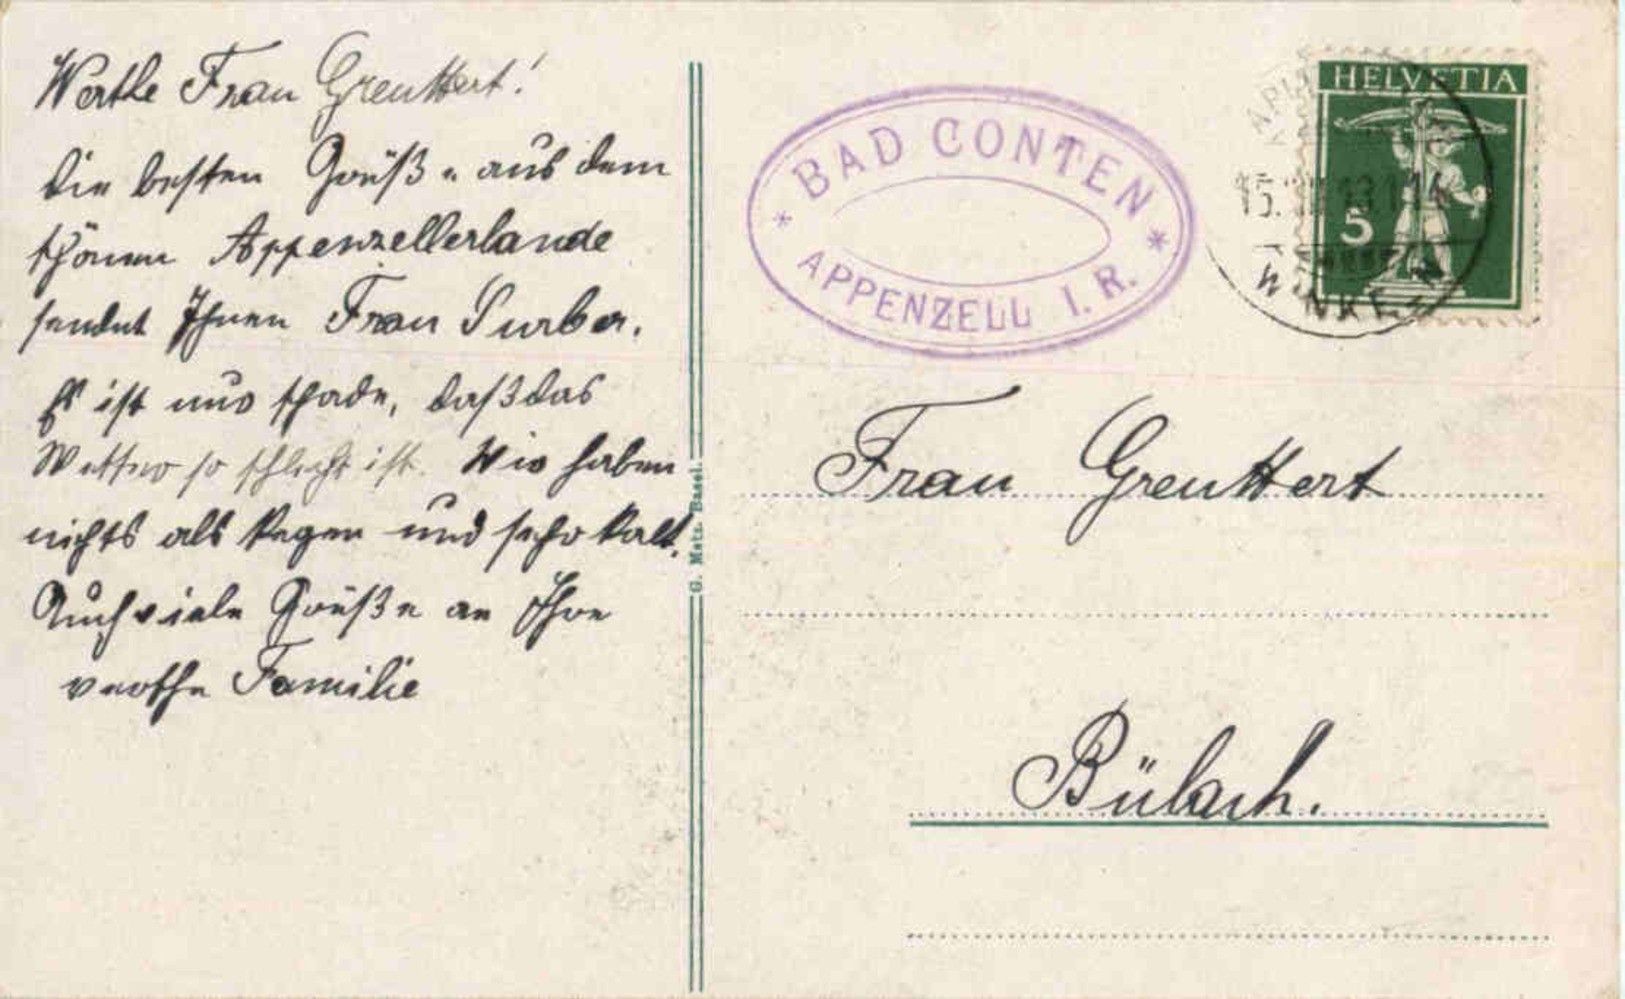 Werthe Frau Greuttert!
die besten Grüße aus dem
schönen Appenzellerlande
sendet Ihnen Frau Surber.
Es ist nur schade, daß das
Wetter so schlecht ist. Wir haben
nichts als Regen und sehr kalt.
Auch viele Grüße an Ihre
werthe Familie
G. Metz, Basel.
* BAD CONTEN *
APPENZELL I. R.
HELVETIA
5
Frau Greuttert
Bülach.